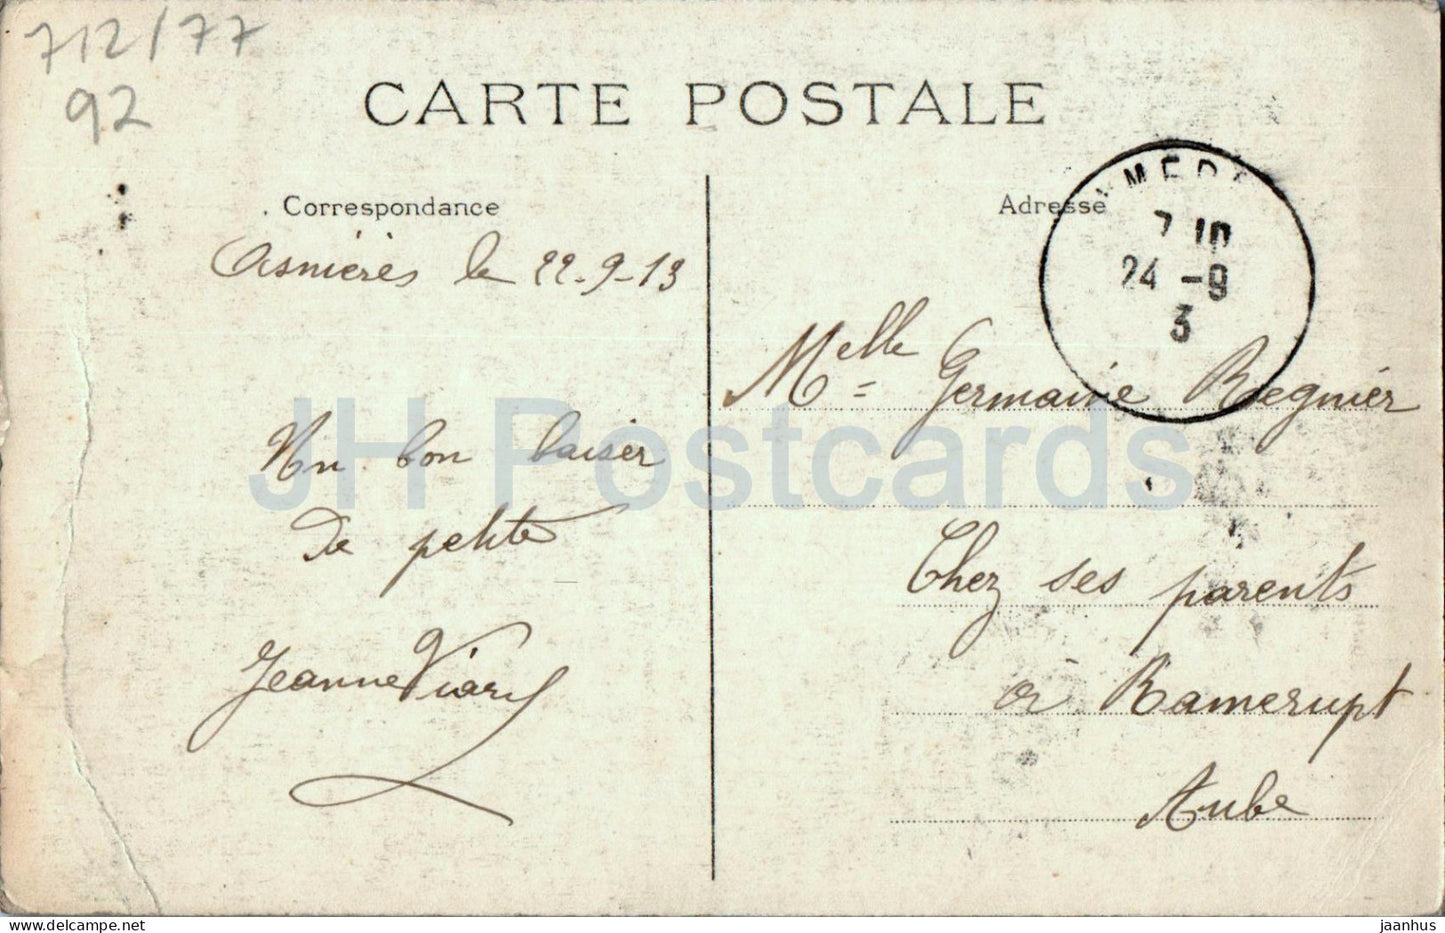 712/77
92
CARTE POSTALE
Correspondance
Asnières le 22-9-13
Un bon baiser
de petite
Jeanne Viard
Adresse
7 10
24 -9
3
Melle Germaine Regnier
Chez ses parents
à Ramerupt
Aube
JH Postcards
jaanhus